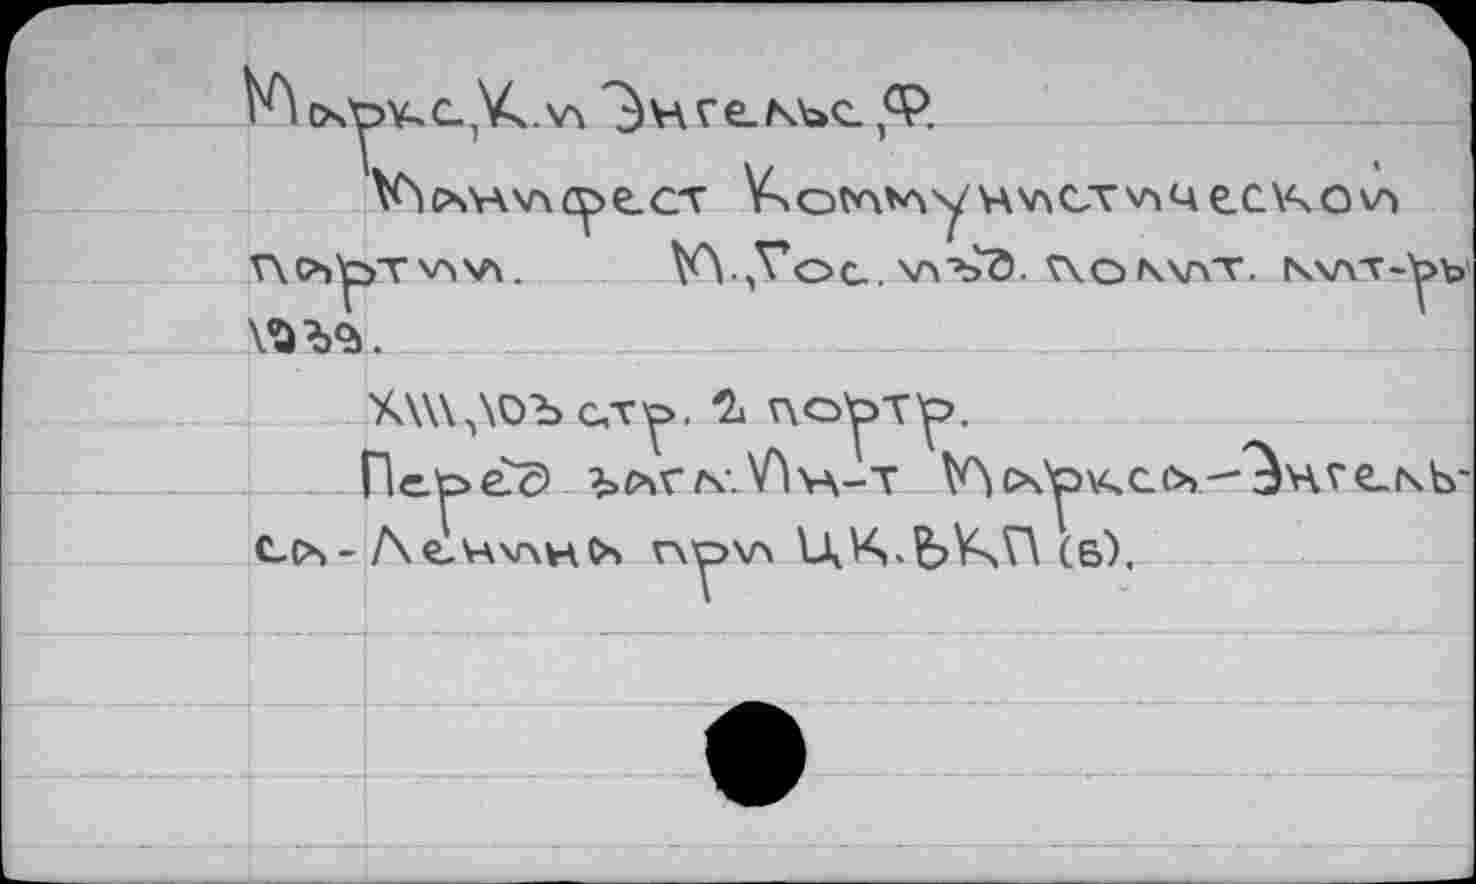 Маркс,К. и Энгельс,Ф.
Манифест Коммунистической
партии. М.,Гос. изд. полит. лит-ры
1939.
XIII,103 стр. 2 портр.
Перед загл: Ин-т Маркса-Энгель-
са-Ленина при ЦК.ВКП(б).